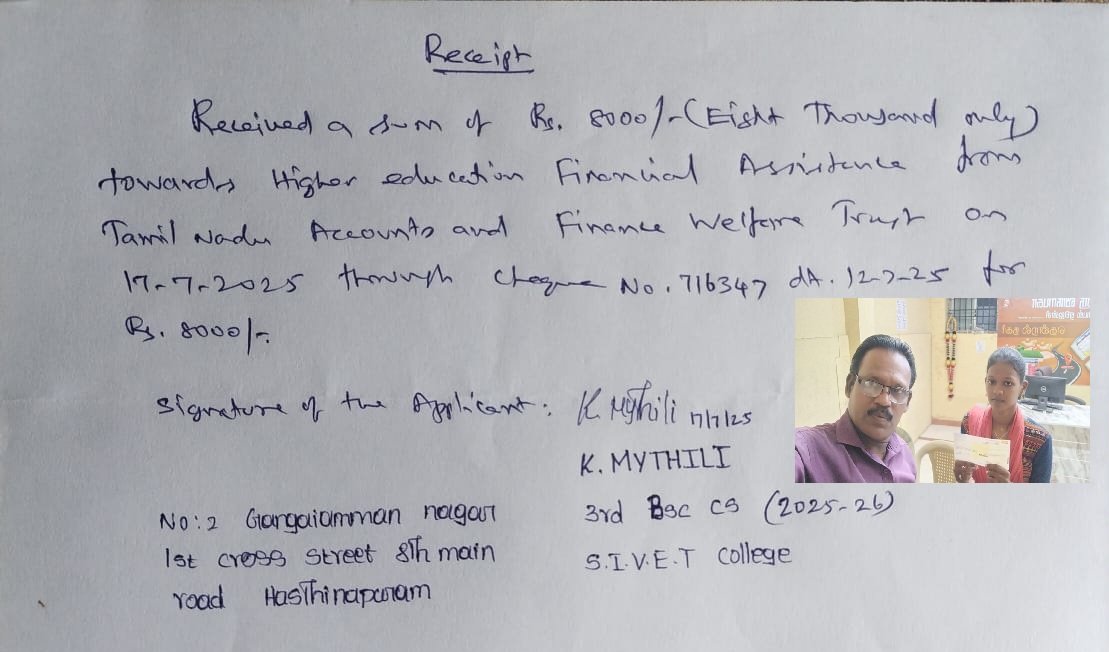 Receipt
Received a sum of Rs. 8000/- (Eight Thousand only)
towards Higher education Financial Assistance from
Tamil Nadu Accounts and Finance Welfare Trust on
17-7-2025 through Cheque No. 716347 dt. 12-7-25 for
Rs. 8000/-.
Signature of the Applicant: K Mythili 17/7/25
K. MYTHILI
No: 2 Gangaiamman nagar
1st cross street 8th main
road Hasthinapuram
3rd Bsc CS (2025-26)
S.I.V.E.T College